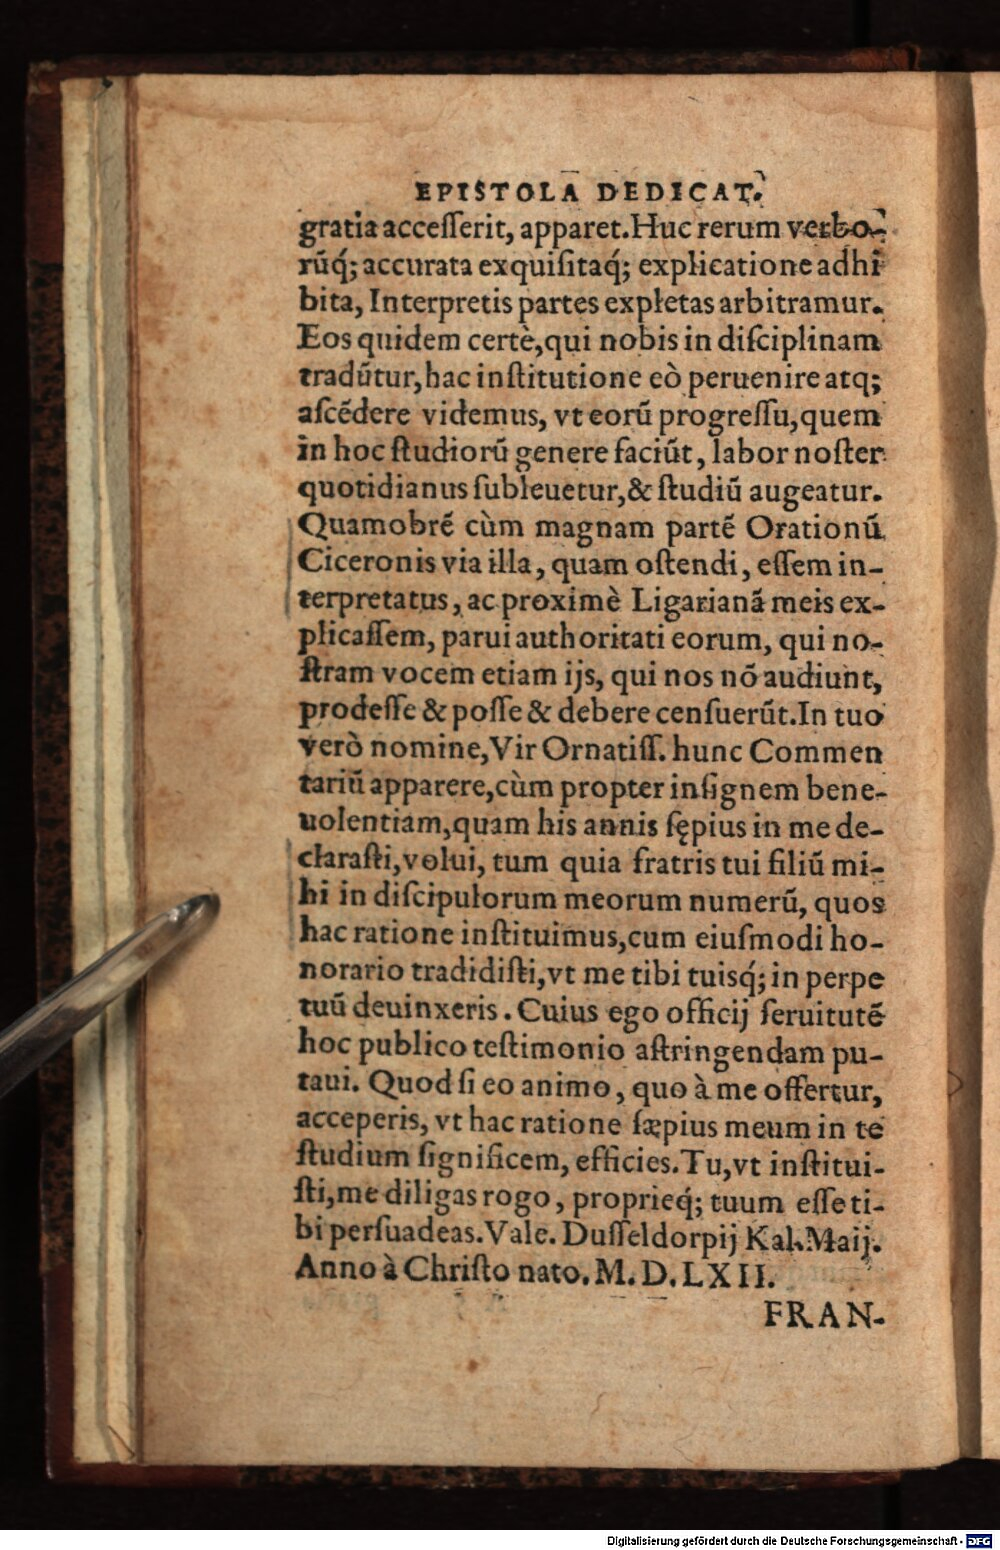 EPISTOLA DEDICAT.
gratia accesserit, apparet. Huc rerum verbo-
rũq́; accurata exquisitaq́; explicatione adhi
bita, Interpretis partes expletas arbitramur.
Eos quidem certè, qui nobis in disciplinam
tradũtur, hac institutione eò peruenire atq;
ascẽdere videmus, vt eorũ progressu, quem
in hoc studiorũ genere faciũt, labor noster
quotidianus subleuetur, & studiũ augeatur.
Quamobrẽ cùm magnam partẽ Orationũ
Ciceronis via illa, quam ostendi, essem in-
terpretatus, ac proximè Ligarianã meis ex-
plicassem, parui authoritati eorum, qui no-
stram vocem etiam ijs, qui nos nõ audiunt,
prodesse & posse & debere censuerũt. In tuo
verò nomine, Vir Ornatiss. hunc Commen
tariũ apparere, cùm propter insignem bene-
uolentiam, quam his annis sępius in me de-
clarasti, volui, tum quia fratris tui filiũ mi-
hi in discipulorum meorum numerũ, quos
hac ratione instituimus, cum eiusmodi ho-
norario tradidisti, vt me tibi tuisq́; in perpe
tuũ deuinxeris. Cuius ego officij seruitutẽ
hoc publico testimonio astringendam pu-
taui. Quod si eo animo, quo à me offertur,
acceperis, vt hac ratione sæpius meum in te
studium significem, efficies. Tu, vt institui-
sti, me diligas rogo, proprieq́; tuum esse ti-
bi persuadeas. Vale. Dusseldorpij Kal. Maij.
Anno à Christo nato. M. D. LXII.
FRAN-
Digitalisierung gefördert durch die Deutsche Forschungsgemeinschaft - DFG